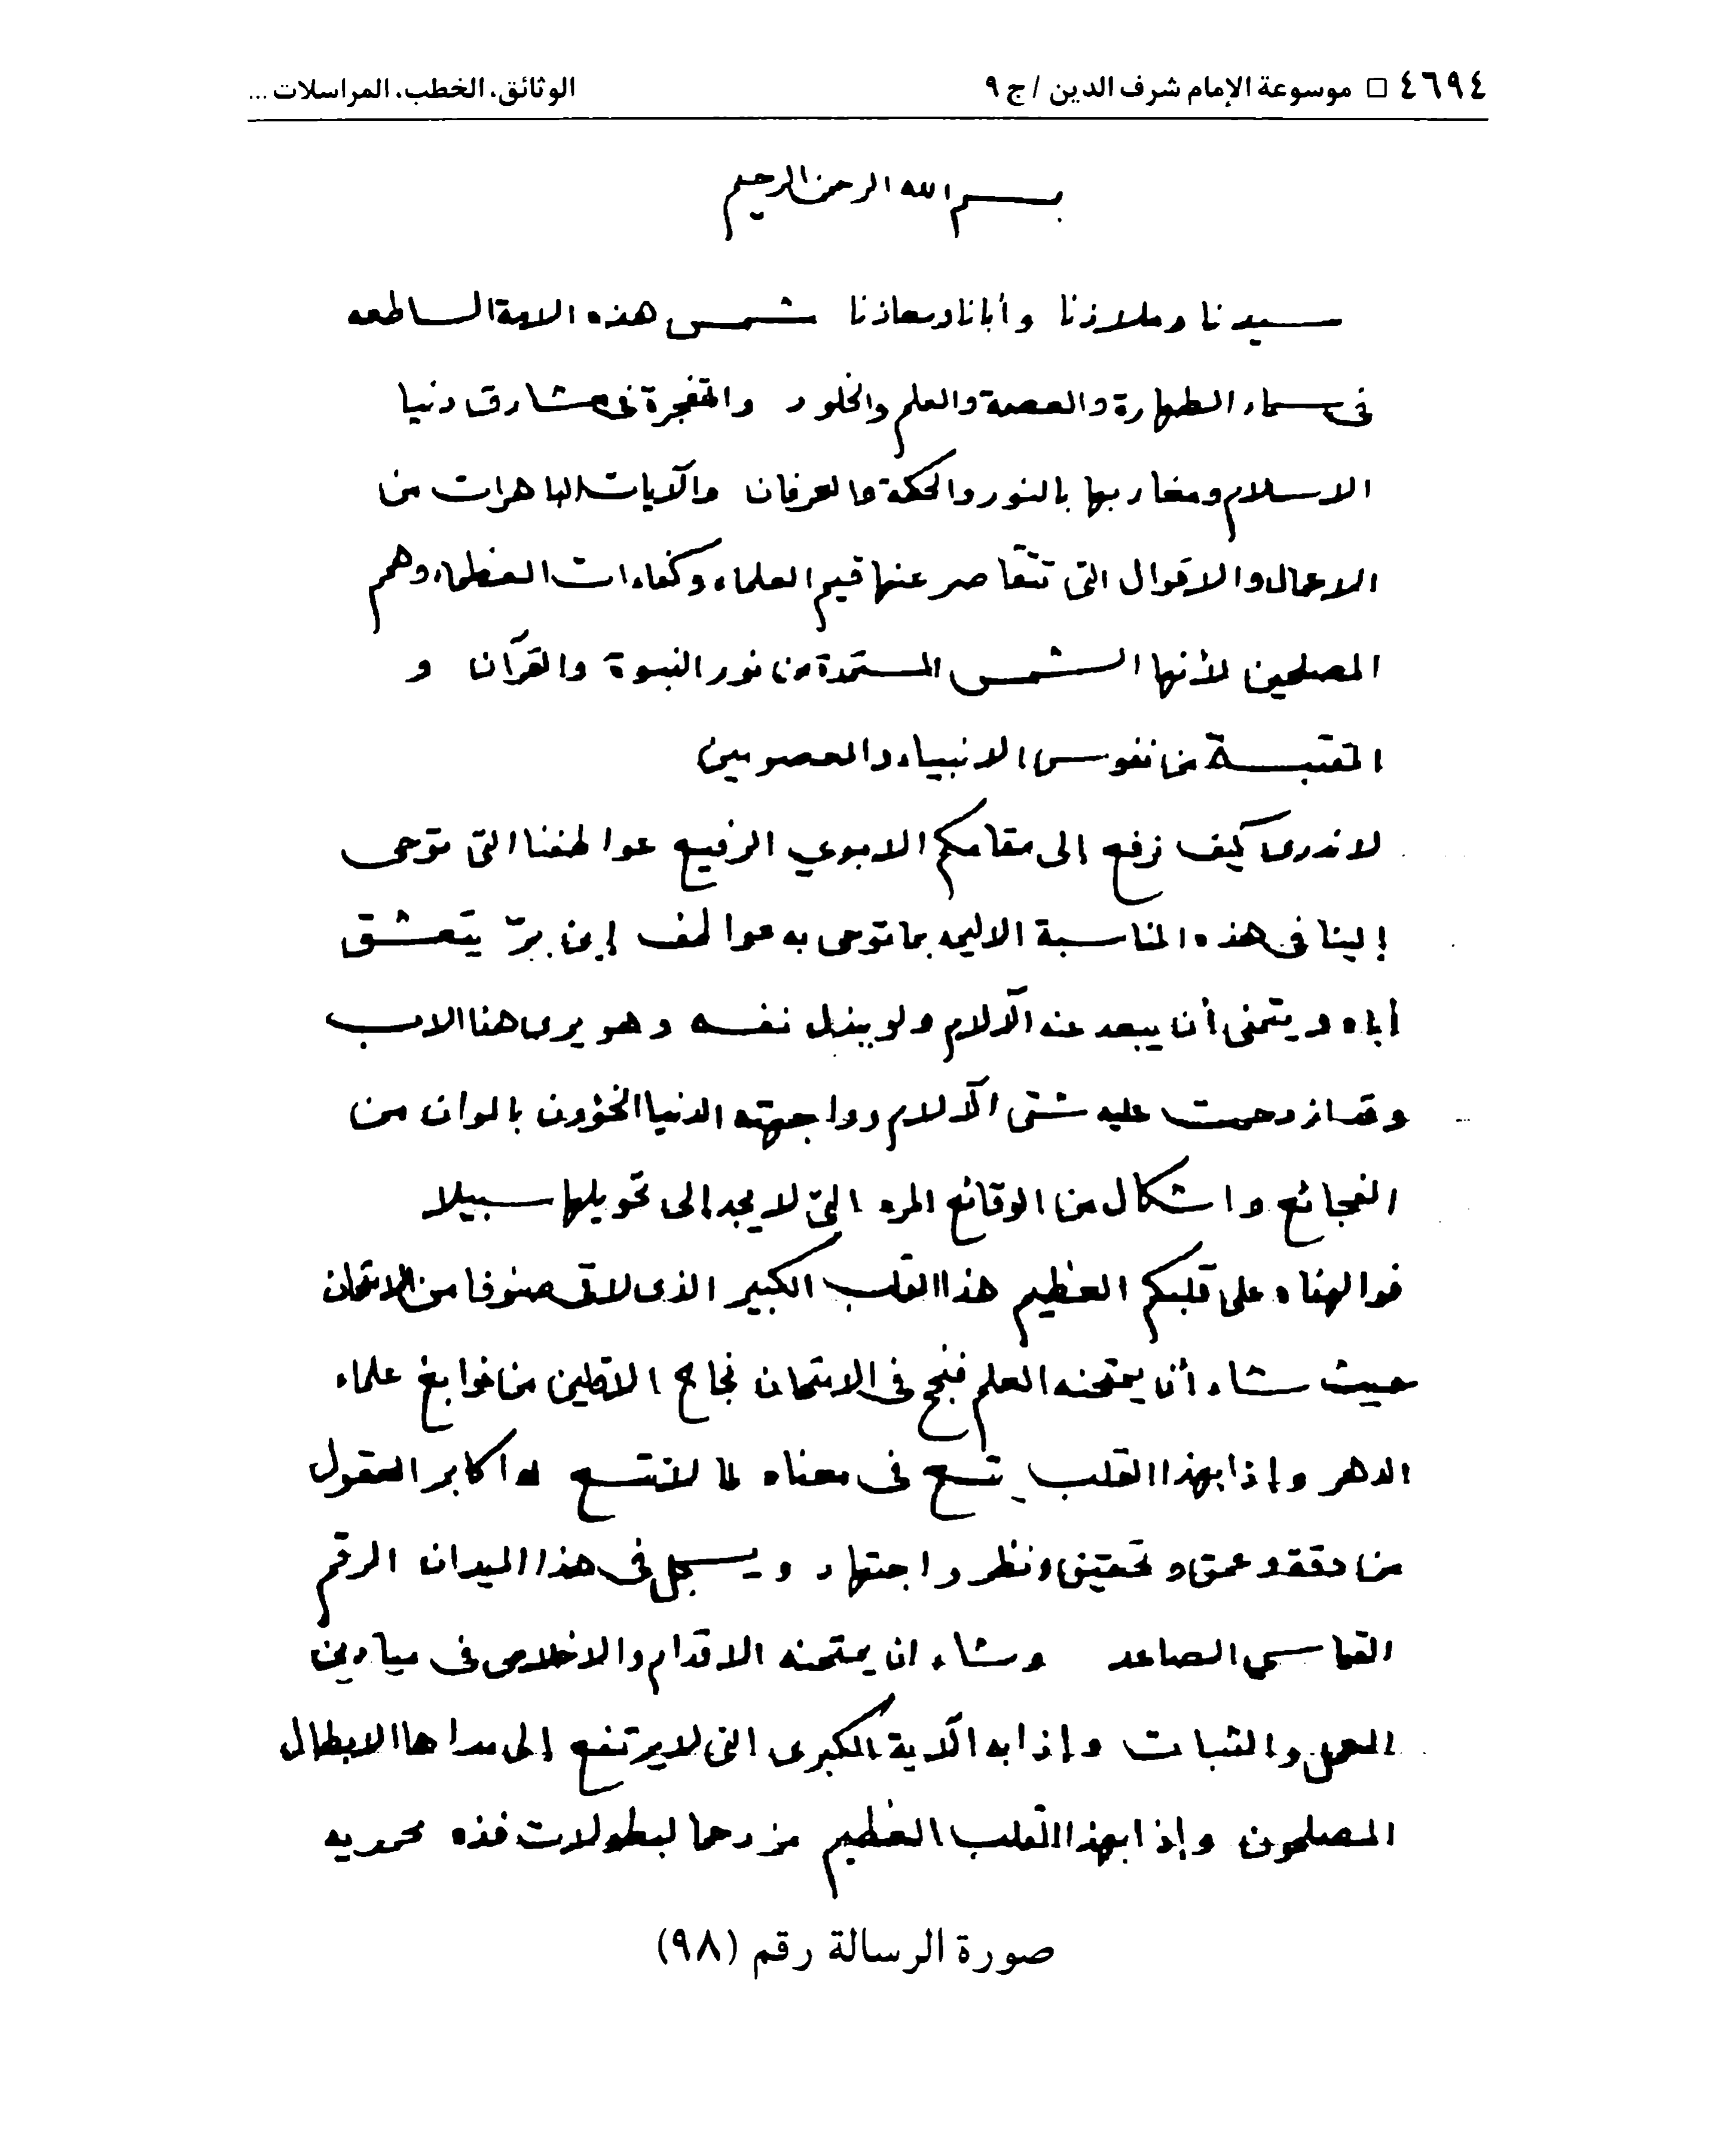 ٤٦٩٤ □ موسوعة الإمام شرف الدين / ج ٩
الوثائق، الخطب، المراسلات ...
بسم الله الرحمن الرحيم
سيدنا وملاذنا وأبانا ومعاذنا شمس هذه الامة الساطعه
في سماء الطهارة والعصمة والعلم والخلود والمتفجرة في مشارق دنيا
الاسلام ومغاربها بالنور والحكمة والعرفان والآيات الباهرات من
الاعمال والاقوال التي تتقاصر عنها قيم العلماء وكفاءات العظماء وهمم
المصلحين لأنها الشمس المستمدة من نور النبوة والقرآن و
المقتبسة من نفوس الانبياء والمعصومين
لا ندرى كيف نرفع إلى مقامكم الابوي الرفيع عواطفنا التي توحى
إلينا في هذه المناسبة الاليمه بما توحى به عواطف إبن برّ يتعشق
أباه ويتمنى أن يبعد عنه الآلام ولو ببذل نفسه وهو يرى هذا الاب
وقد ازدحمت عليه شتى الآلام وواجهته الدنيا الخؤون بالوان من
الفجائع واشكال من الوقائع المره التي لا يجد إلى تحويلها سبيلا
فوالهفاه على قلبكم العظيم هذا القلب الكبير الذى لاقى صنوفا من الامتحان
حيث شاء أن يمتحنه العلم فنجح في الامتحان نجاح الاقلين من نوابغ علماء
الدهر وإذا بهذا القلب يتسع في معناه لما لا تتسع له اكابر العقول
من دقة وعمق وتحقيق ونظر واجتهاد ويسجل في هذا الميدان الرقم
القياسي الصاعد وشاء ان يمتحنه الاقدام والاخلاص في ميادين
العمل والثبات وإذا به الآية الكبرى التي لا يرتفع إلى مداها الابطال
المصلحون وإذا بهذا القلب العظيم مزدحما لبطولات فذه محمديه
صورة الرسالة رقم (٩٨)